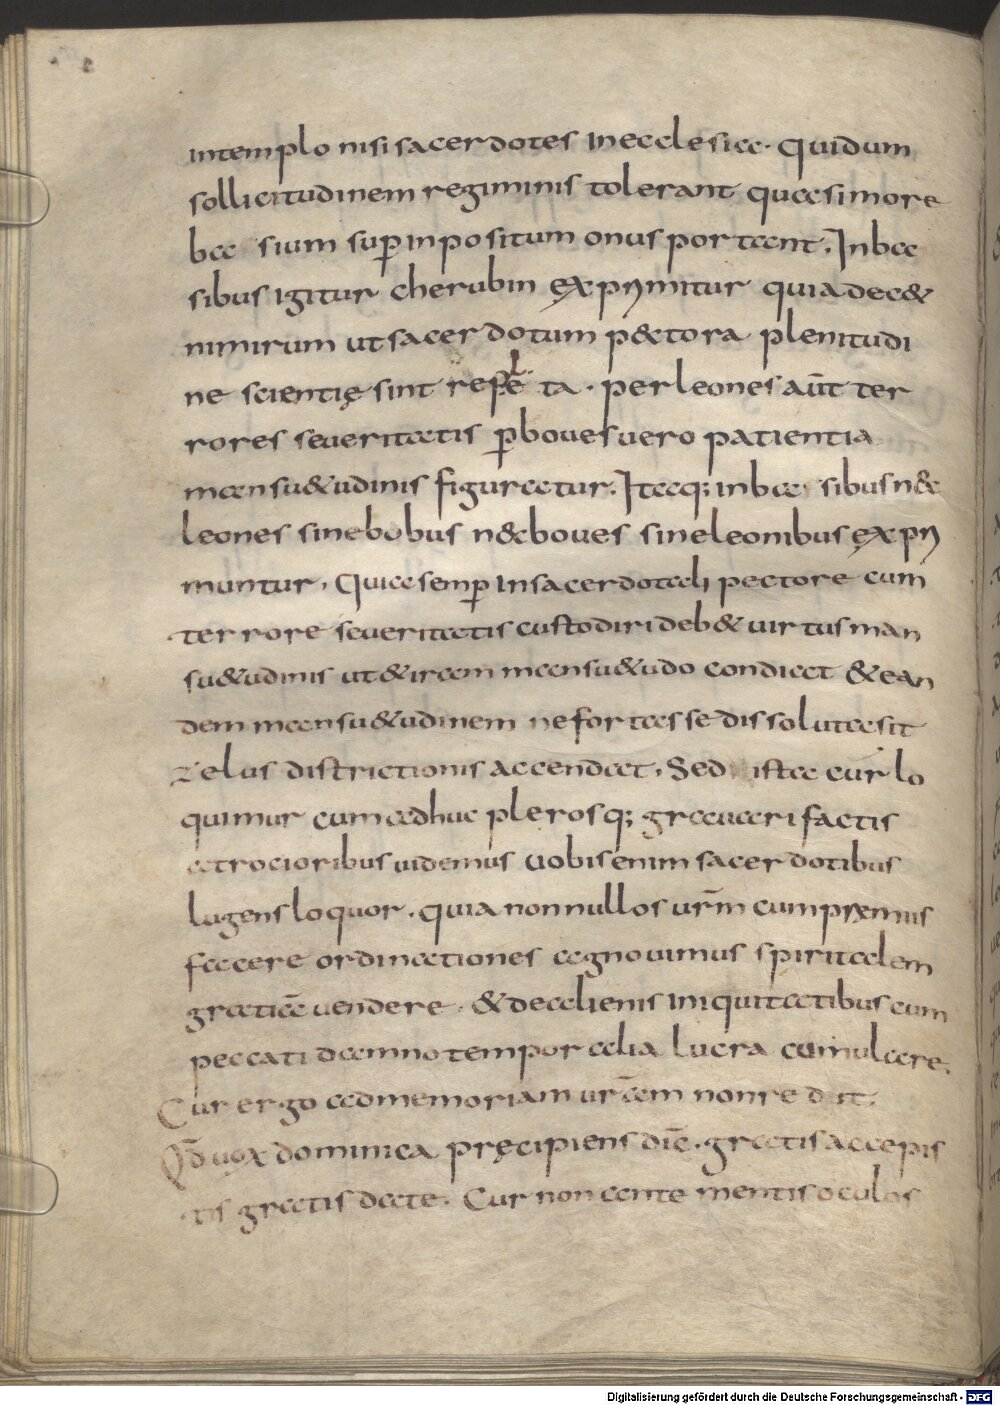 intemplo nisi sacerdotes in ecclesia. Qui dum
sollicitudinem regiminis tolerant quasi more
ba sium sup̄ inpositum onus portant. In ba
sibus igitur cherubin exprimitur quia dec&
nimirum ut sacerdotum p&tora plenitudi
ne scientię sint refer ta. per leones aūt ter
rores seueritatis p̄ boues uero patientia
mansu&udinis figuratur. Itaq; in basibus n&
leones sine bobus n& boues sine leonibus expri
muntur. Quia semp̄ in sacerdotali pectore cum
terrore seueritatis custodiri deb& uirtus man
su&udinis ut & iram mansu&udo condiat & ean
dem mansu&udinem ne fortasse dissoluta sit
zelus districtionis accendat. Sed ista cur lo
quimur cum adhuc plerosq; grauari factis
atrocioribus uidemus uobis enim sacerdotibus
lugens loquor. quia nonnullos urm̄ cum pręmiis
facere ordinationes agnouimus spiritalem
gratiā uendere. & de alienis iniquitatibus cum
peccati damno temporalia lucra cumulare.
Cur ergo ad memoriam urām non redit.
Qd̄ uox dominica pręcipiens dic̄. gratis accepis
tis gratis date. Cur non ante mentis oculos
Digitalisierung gefördert durch die Deutsche Forschungsgemeinschaft - DFG